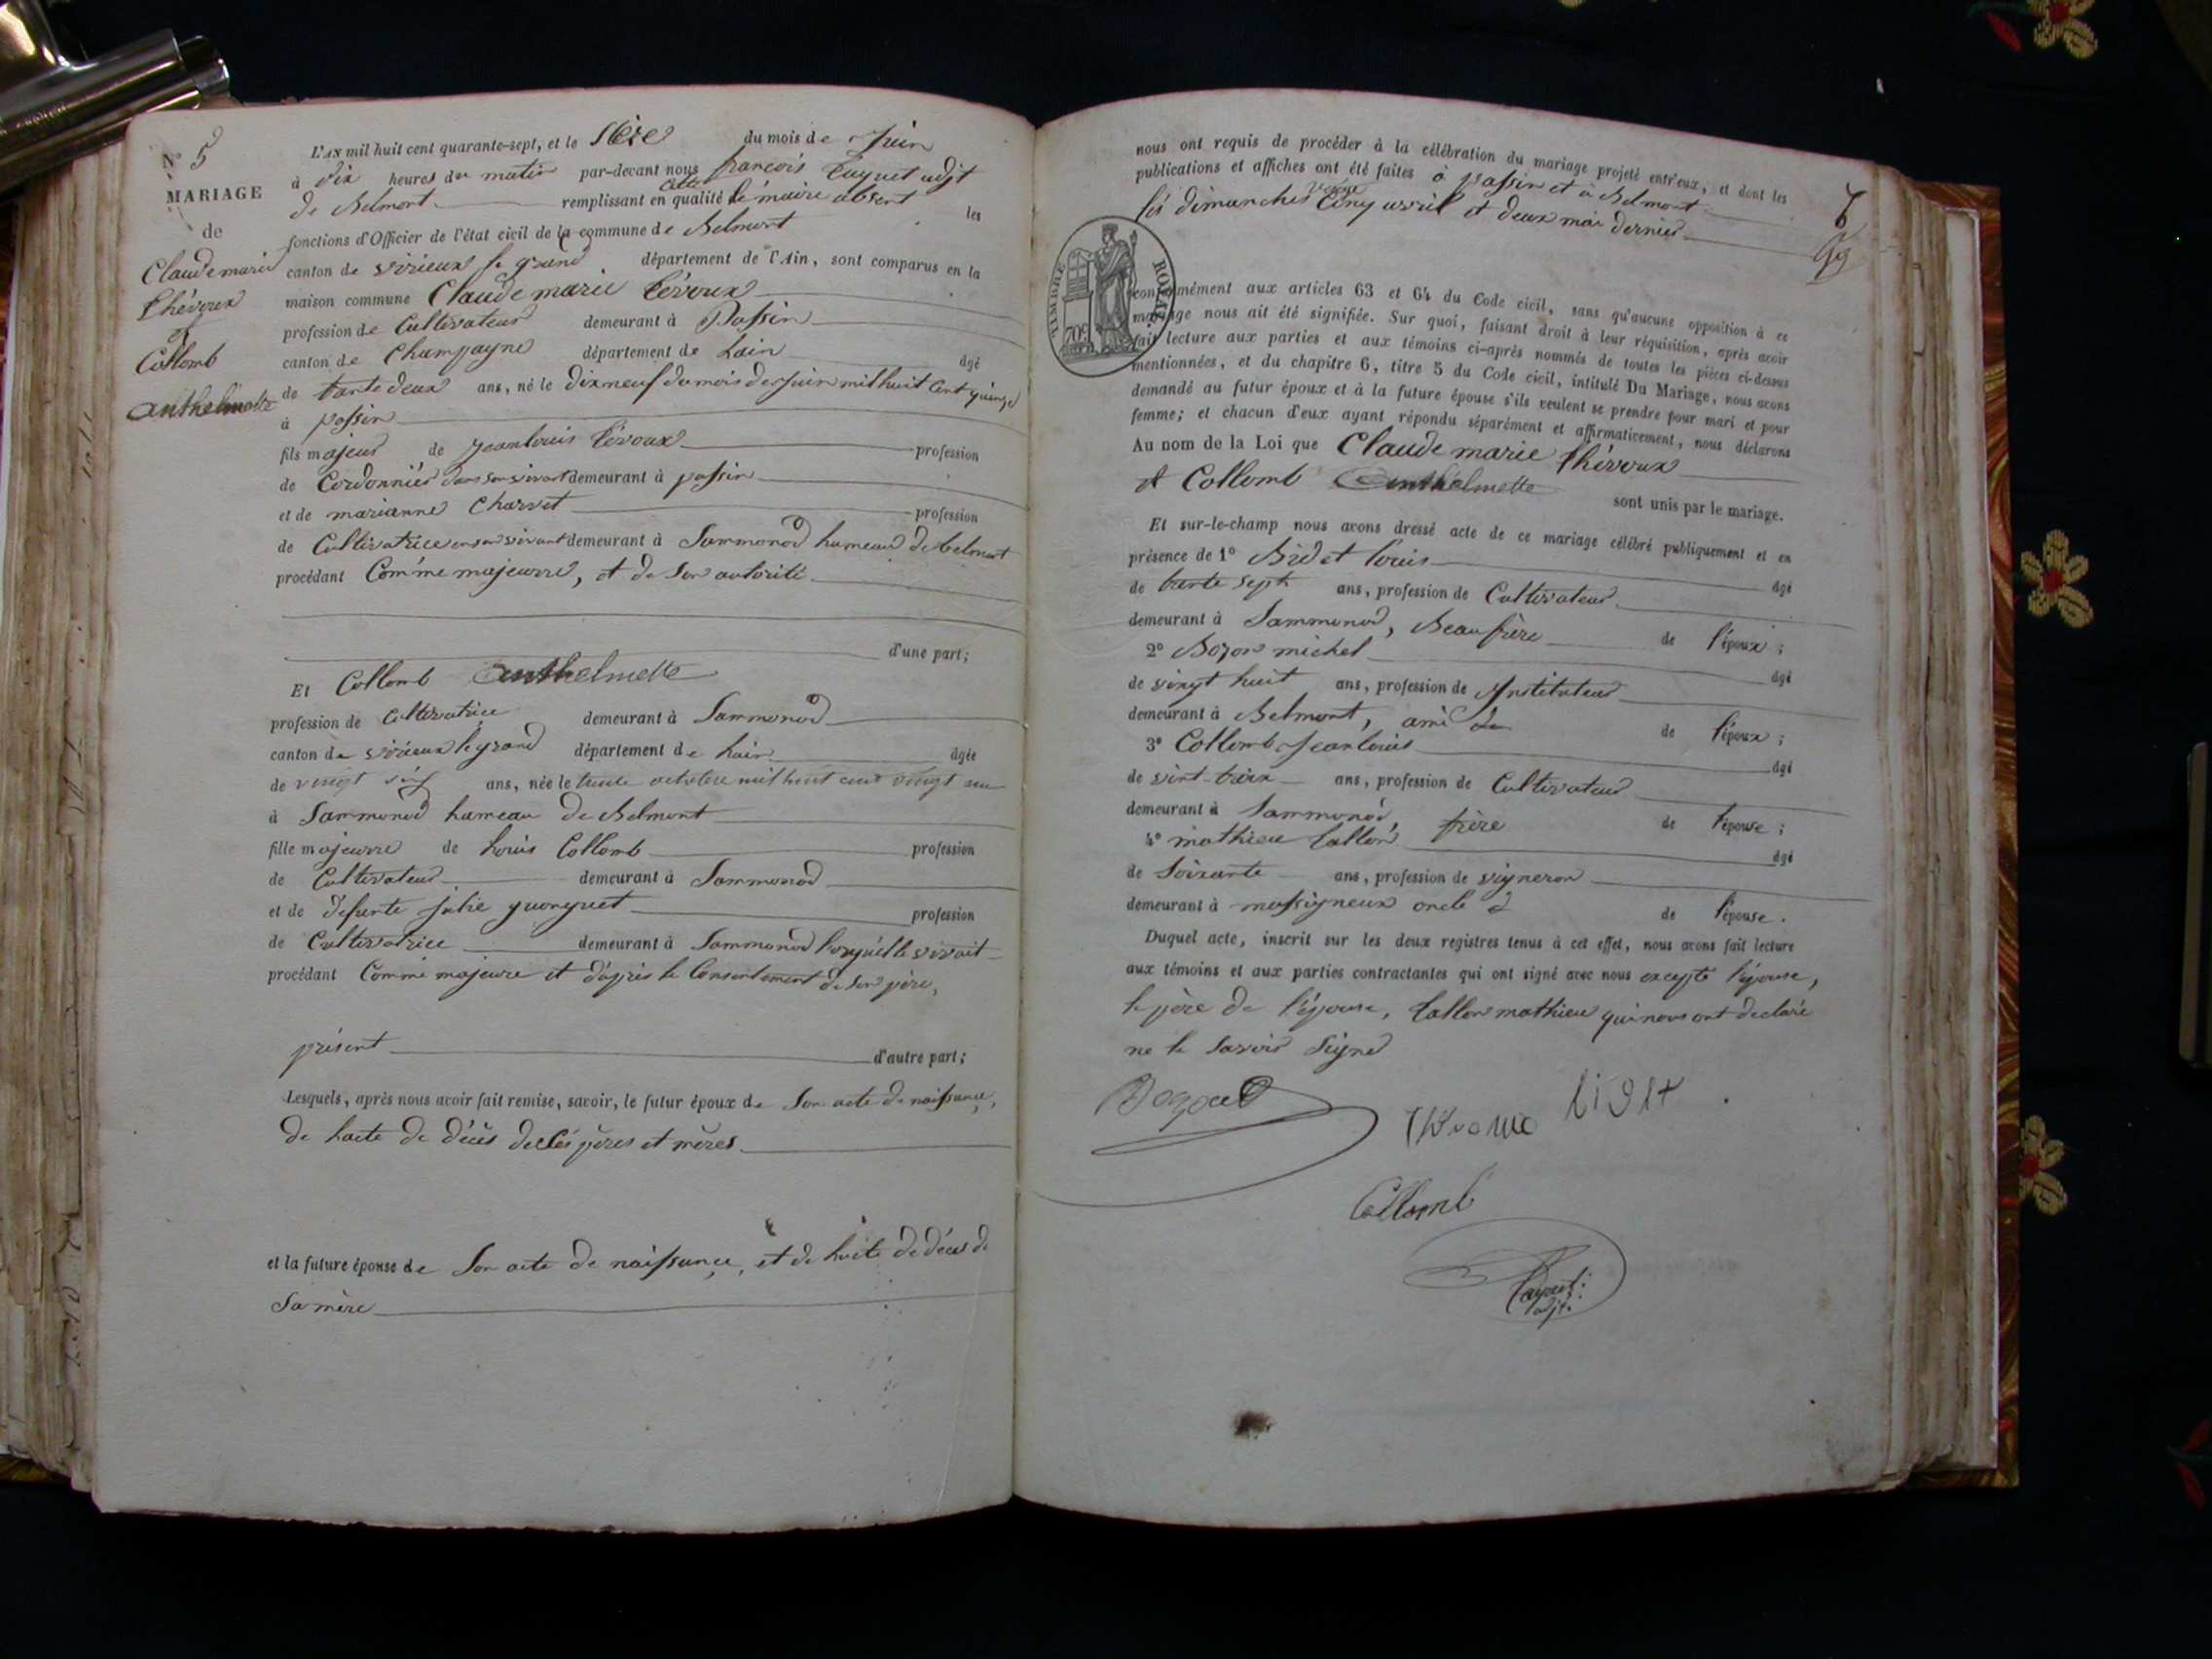 N° 5
MARIAGE
de
Claude marie
Thévoux
et
Collomb
anthelmette
L'AN mil huit cent quarante-sept, et le du mois de Juin
à dix heures du matin par-devant nous françois adjt
de Belmont remplissant en qualité le maire absent les
fonctions d'Officier de l'état civil de la commune de Belmont
canton de virieux le grand département de l'Ain, sont comparus en la
maison commune Claude marie tévoux
profession de Cultivateur demeurant à Passin
canton de Champagne département de hain âgé
de trante deux ans, né le dixneuf du mois de juin mil huit cent quinze
à passin
fils majeur de jean louis tévoux profession
de Cordonnier dans son vivant demeurant à passin
et de marianne Charvet profession
de Cultivatrice en son vivant demeurant à Sammonod hameau de Belmont
procédant Comme majeurre, et de Son autorité
d'une part;
Et Collomb anthelmette
profession de Cultivatrice demeurant à Sammonod
canton de virieux le grand département de hain âgée
de vingt ans, née le trente octobre mil huit cent vingt
à Sammonod hameau de Belmont
fille majeurre de Louis Collomb profession
de Cultivateur demeurant à Sammonod
et de defunte Julie profession
de Cultivatrice demeurant à Sammonod lorsquelle vivait
procédant Comme majeure et d'après le Consentement de Son père,
présent d'autre part;
Lesquels, après nous avoir fait remise, savoir, le futur époux de Son acte de naissance,
de hacte de décès de Cés pères et mères
et la future épouse de Son acte de naissance, et de hacte de décès de
Sa mère
nous ont requis de procéder à la célébration du mariage projeté entr'eux, et dont les
publications et affiches ont été faites à passin et à Belmont
les dimanches vingt cinq avril et deux mai dernier
TIMBRE ROYAL
conformément aux articles 63 et 64 du Code civil, sans qu'aucune opposition à ce
mariage nous ait été signifiée. Sur quoi, faisant droit à leur réquisition, après avoir
fait lecture aux parties et aux témoins ci-après nommés de toutes les pièces ci-dessus
mentionnées, et du chapitre 6, titre 5 du Code civil, intitulé Du Mariage, nous avons
demandé au futur époux et à la future épouse s'ils veulent se prendre pour mari et pour
femme; et chacun d'eux ayant répondu séparément et affirmativement, nous déclarons
Au nom de la Loi que Claude marie thévoux
et Collomb Anthelmette sont unis par le mariage.
Et sur-le-champ nous avons dressé acte de ce mariage célébré publiquement et en
présence de 1° louis âgé
de trante sept ans, profession de Cultivateur
demeurant à Sammonod, Beaufrère de l'époux;
2° Bozon michel âgé
de vingt huit ans, profession de Instituteur
demeurant à Belmont, ami de l'époux;
3° Collomb Jean louis âgé
de vint-troix ans, profession de Cultivateur
demeurant à Sammonod, frère de l'épouse;
4° mathieu tallon âgé
de Soixante ans, profession de vigneron
demeurant à massigneux oncle de l'épouse.
Duquel acte, inscrit sur les deux registres tenus à cet effet, nous avons fait lecture
aux témoins et aux parties contractantes qui ont signé avec nous excepté l'épouse,
le père de l'épouse, tallon mathieu qui nous ont déclaré
ne le Savoir Signer
Collomb
adjt.